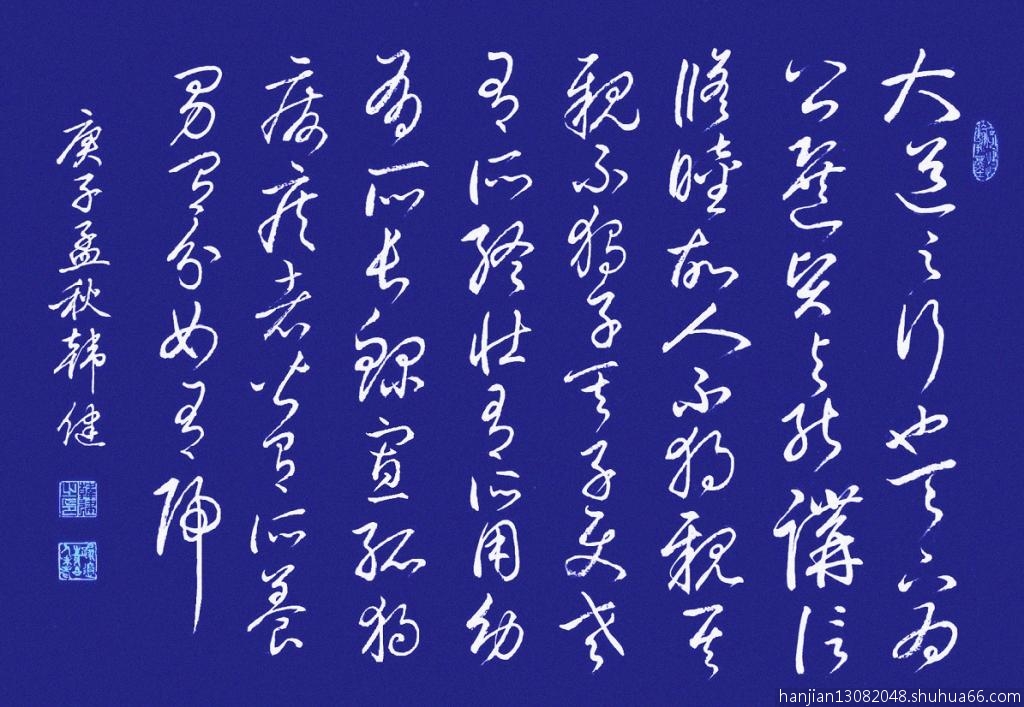 大道之行也天下為
公選賢与能講信
修睦故人不獨親其
親不獨子其子使老
有所終壯有所用幼
有所長鰥寡孤獨
廢疾者皆有所養
男有分女有歸
庚子孟秋韓健
hanjian13082048.shuhua66.com